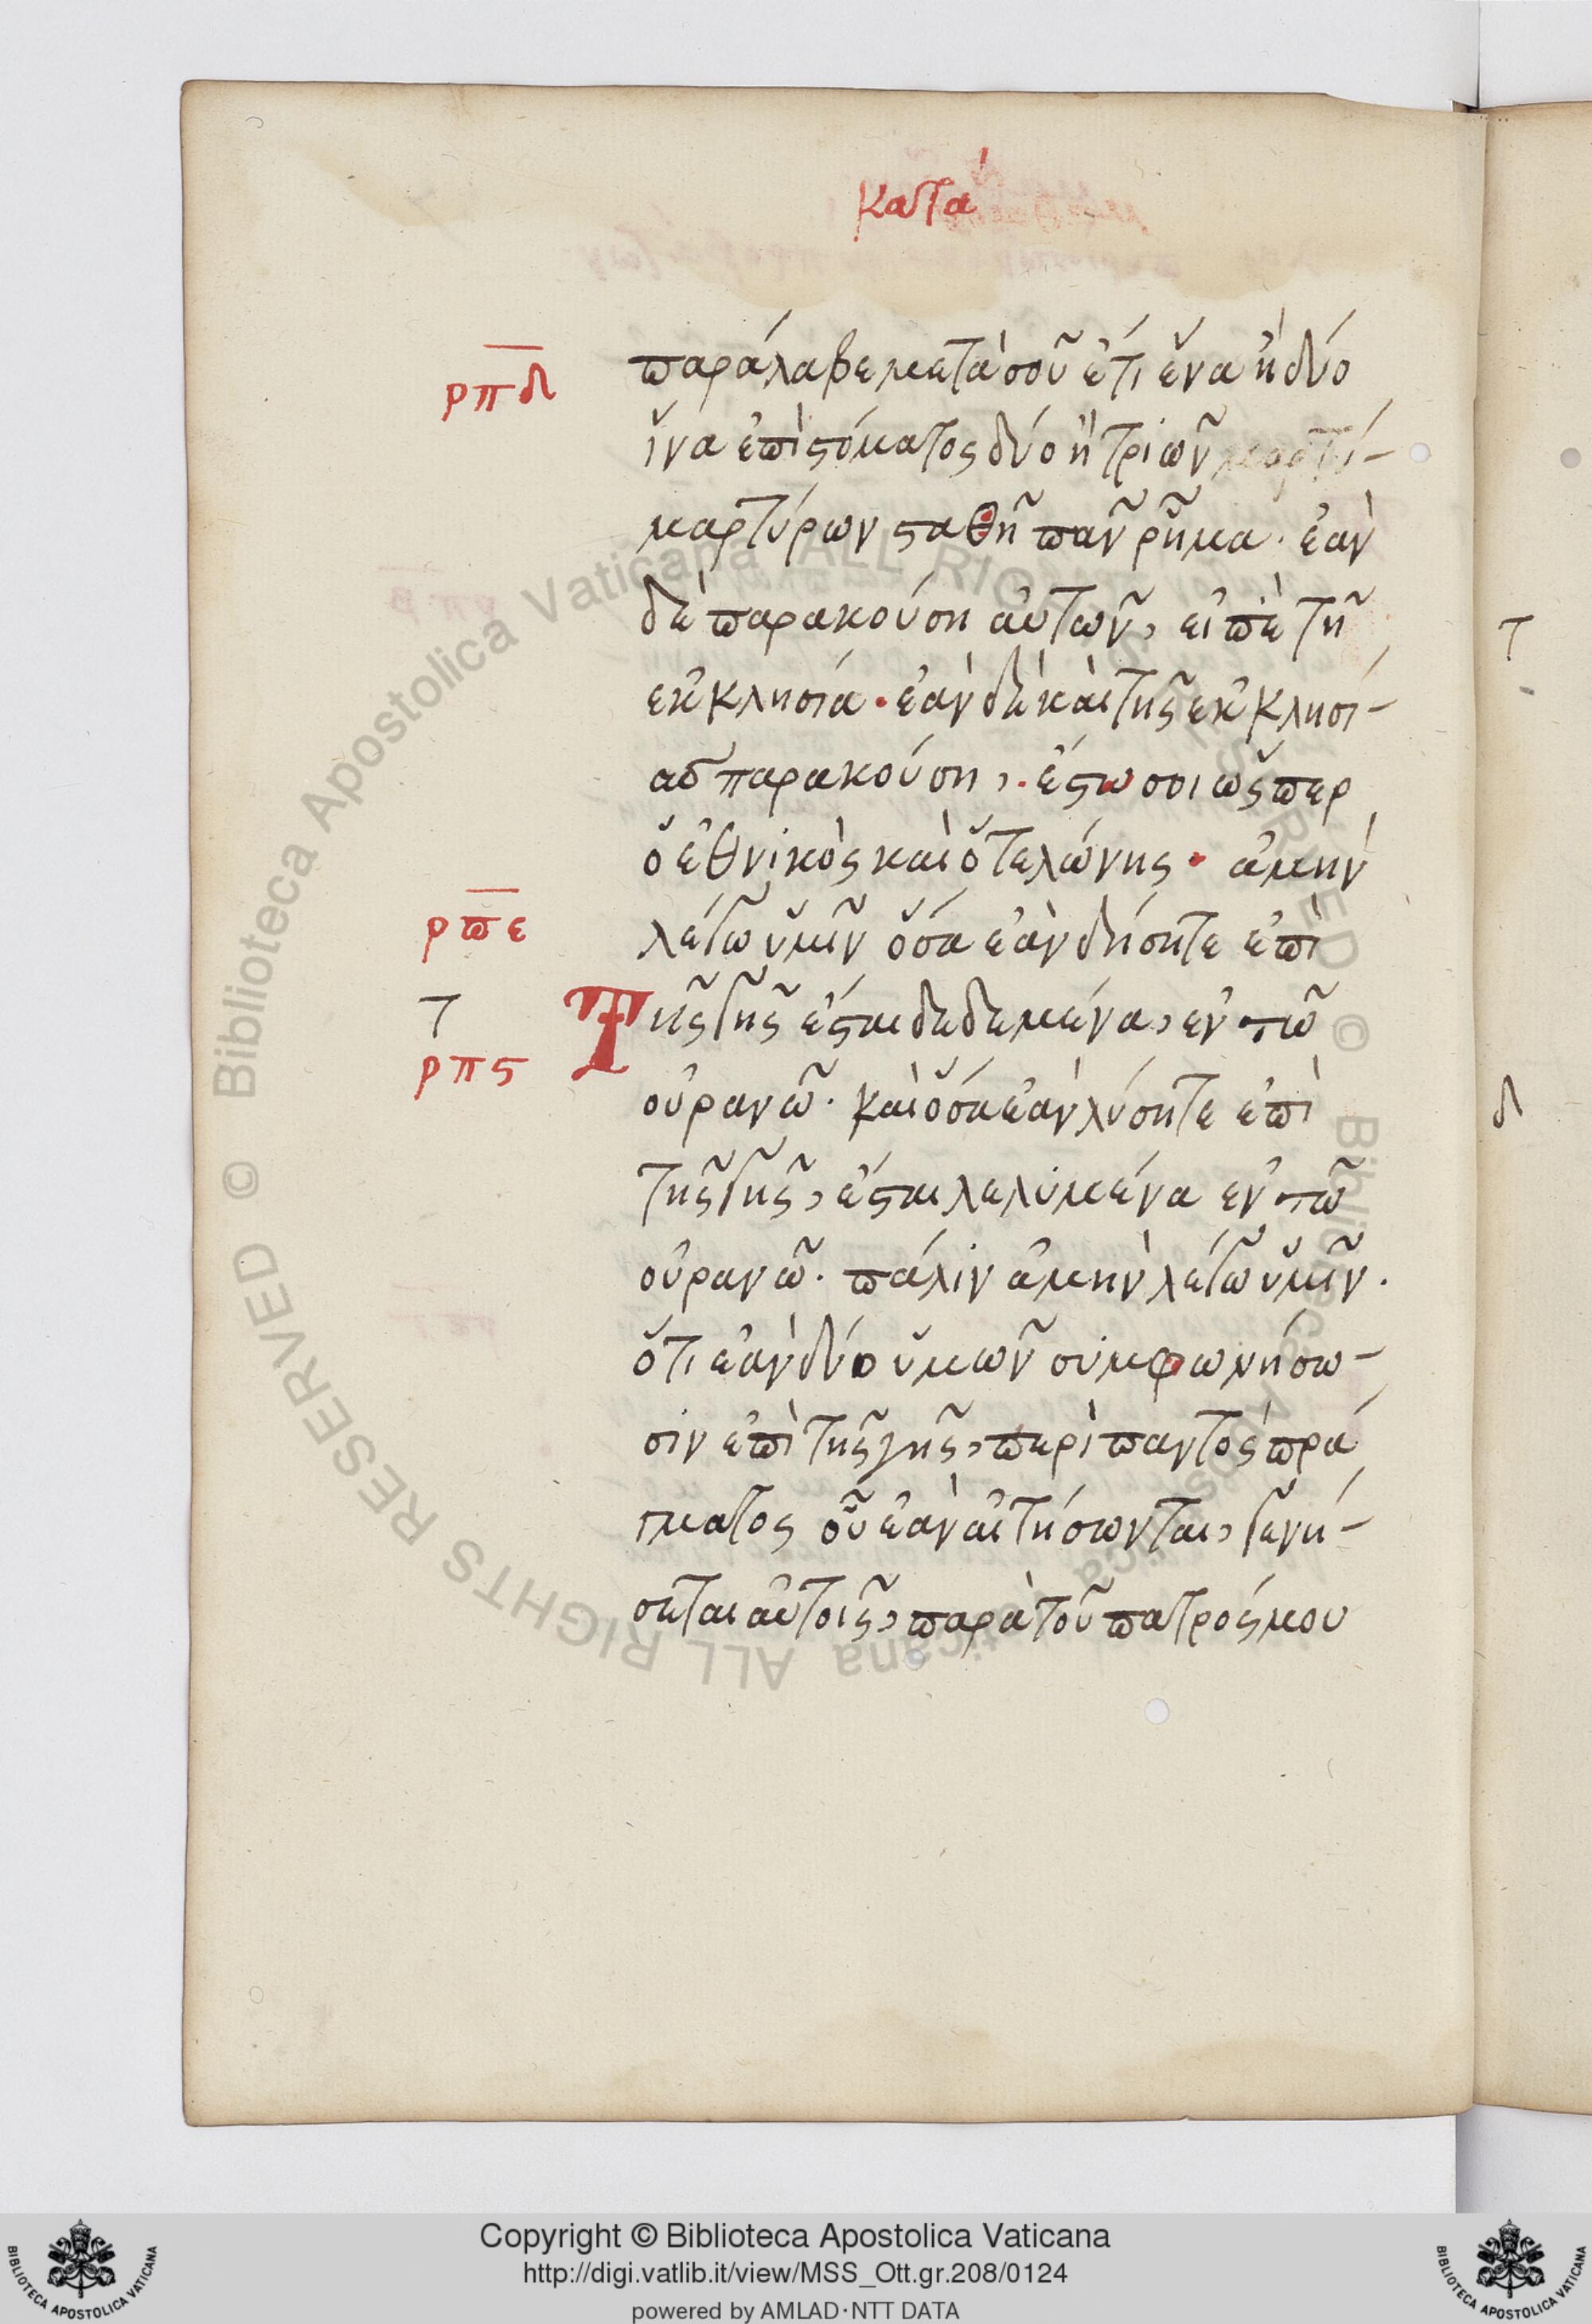 κατα
ρπδ
παράλαβε μετὰ σοῦ ἔτι ἕνα ἢ δύο
ἵνα ἐπὶ ϛόματος δύο ἢ τριῶν μαρτύ-
μαρτύρων ϛαθῆ πᾶν ῥῆμα· ἐὰν
δὲ παρακούση αὐτῶν, εἰπὲ τῆ
ἐκκλησία· ἐὰν δὲ καὶ τῆς ἐκκλησί-
ας παρακούση,· ἔϛω σοι ὥσπερ
ὁ ἐθνικὸς καὶ ὁ τελώνης· ἀμὴν
ρπε
λέγω ὑμῖν ὅσα ἐὰν δήσητε ἐπὶ
τ
Τῆς γῆς ἔϛαι δεδεμένα, ἐν τῶ
ρπϛ
οὐρανῶ· καὶ ὅσα ἐὰν λύσητε ἐπὶ
τῆς γῆς, ἔϛαι λελυμένα ἐν τῶ
οὐρανῶ· πάλιν ἀμὴν λέγω ὑμῖν·
ὅτι ἐὰν δύο ὑμῶν συμφωνήσω-
σιν ἐπὶ τῆς γῆς, περὶ παντὸς πρά
γματος οὗ ἐὰν αἰτήσωνται, γενή-
σεται αὐτοῖς, παρὰ τοῦ πατρός μου
τ
δ
Copyright © Biblioteca Apostolica Vaticana
http://digi.vatlib.it/view/MSS_Ott.gr.208/0124
powered by AMLAD·NTT DATA
BIBLIOTECA APOSTOLICA VATICANA
BIBLIOTECA APOSTOLICA VATICANA
© Biblioteca Apostolica Vaticana ALL RIGHTS RESERVED © Biblioteca Apostolica Vaticana ALL RIGHTS RESERVED